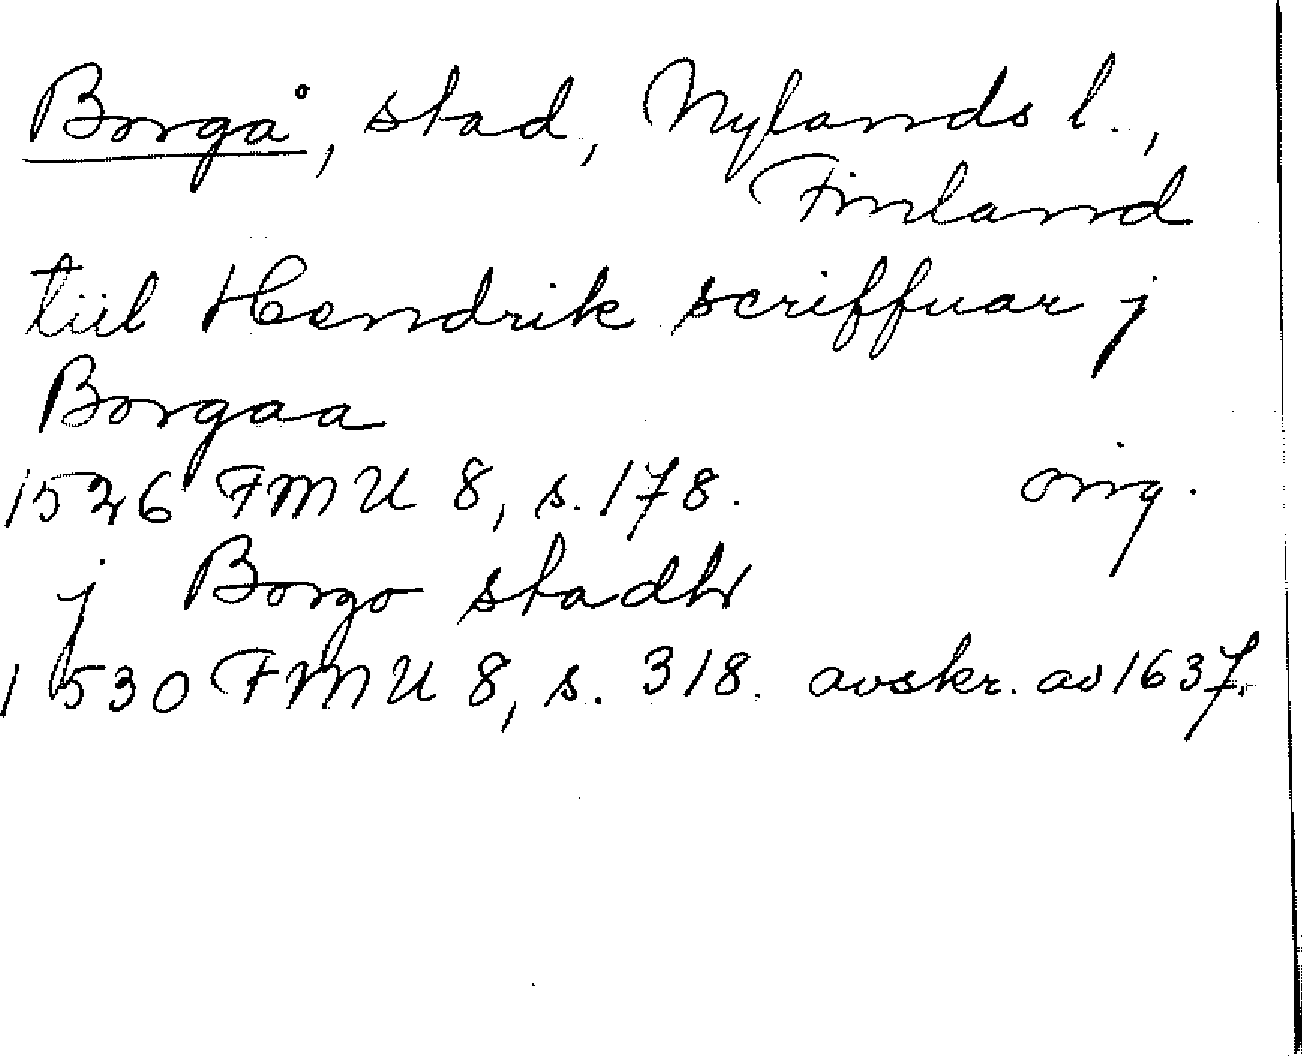 Borgå, stad, Nylands l.,
Finland
tiil Hendrik scriffuar j
Borgaa
1526 FMU 8, s. 178. orig.
j Borgo stadh
1530 FMU 8, s. 318. avskr. av 1637.